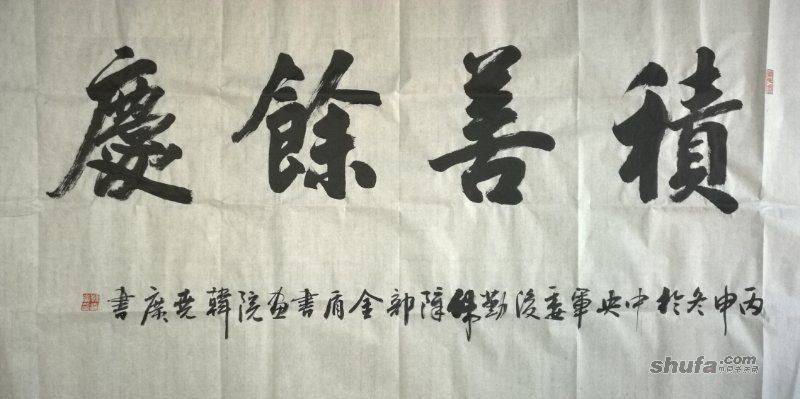 積善餘慶
丙申冬於中央軍委後勤保障部金盾書畫院韓堯廣書
shufa.com